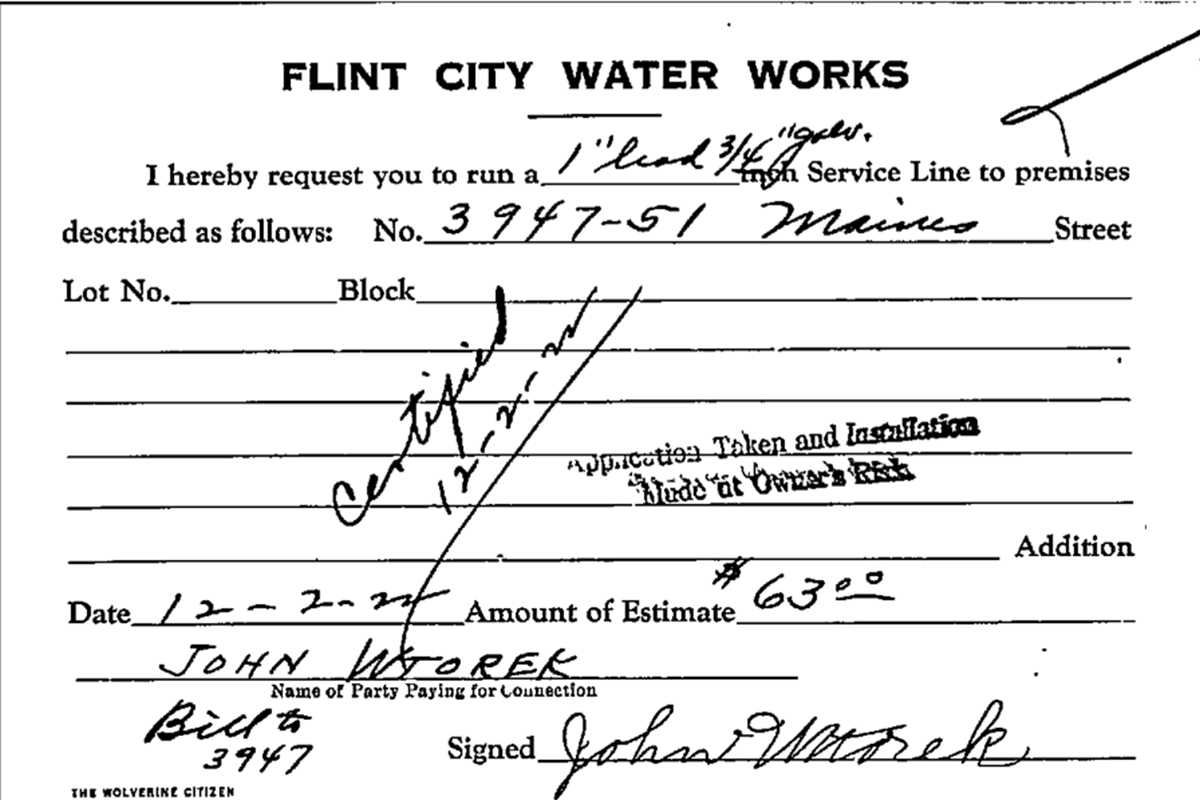 FLINT CITY WATER WORKS
1" lead 3/4" galv.
I hereby request you to run a inch Service Line to premises
described as follows: No. 3947-51 Maines Street
Lot No. Block
Certified
12-2-22
Application Taken and Installation
Made at Owner's Risk
Addition
Date 12-2-22 Amount of Estimate $63 00
JOHN WTOREK
Name of Party Paying for Connection
Bill to
3947
Signed John Wtorek
THE WOLVERINE CITIZEN